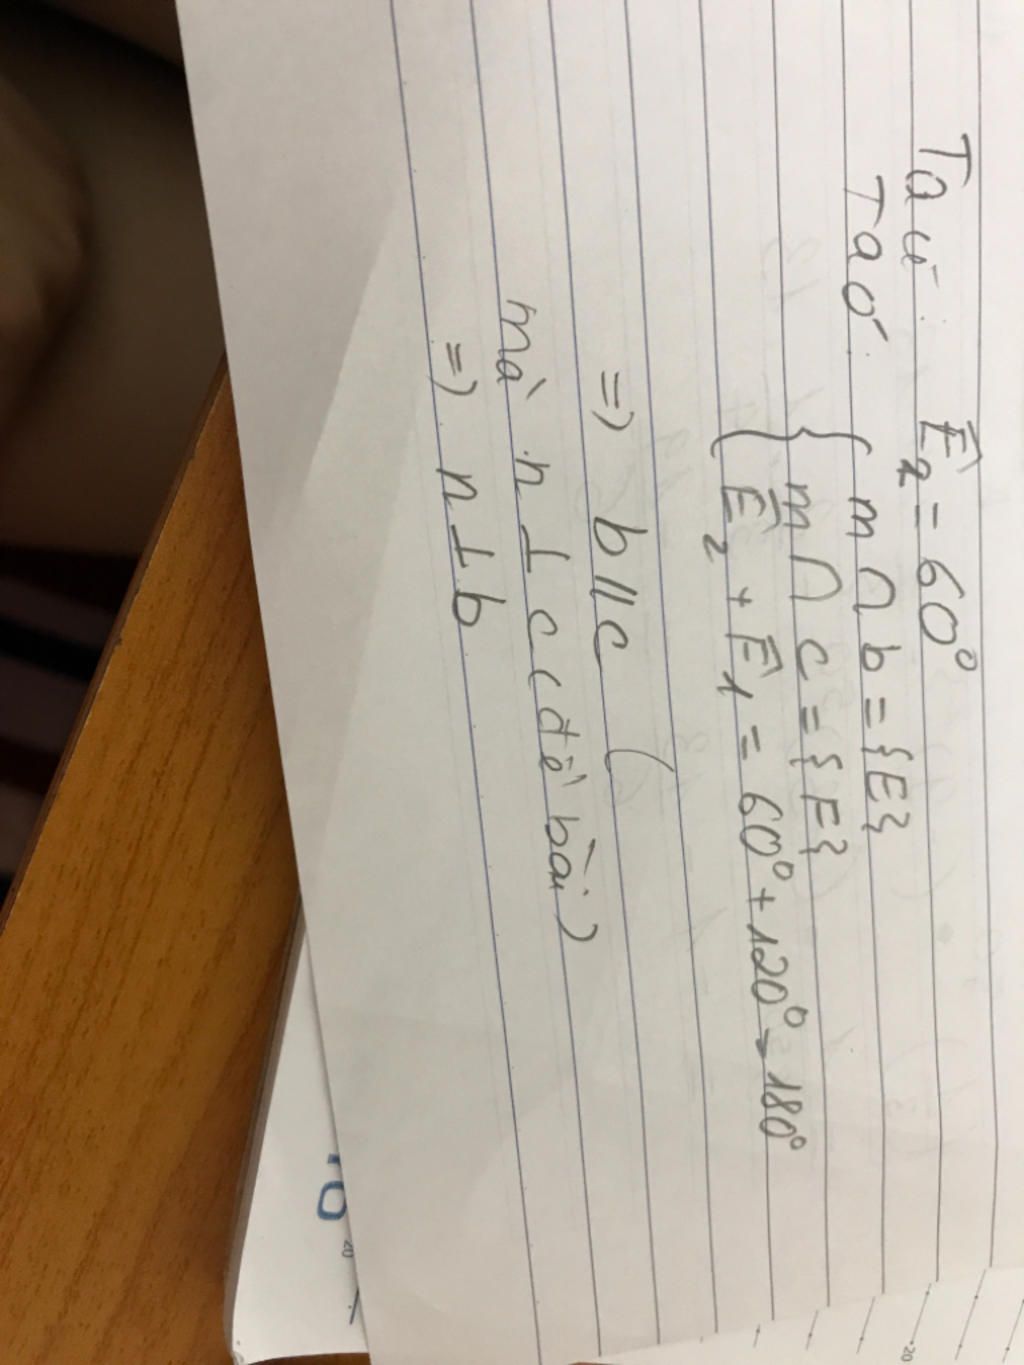 Ta có Ê₂ = 60°
Ta có
{ m ∩ b = {E}
{ m ∩ c = {F}
{ Ê₂ + F̂₁ = 60° + 120° = 180°
=) b // c (
mà n ⊥ c (đề bài)
=) n ⊥ b
10
20
20